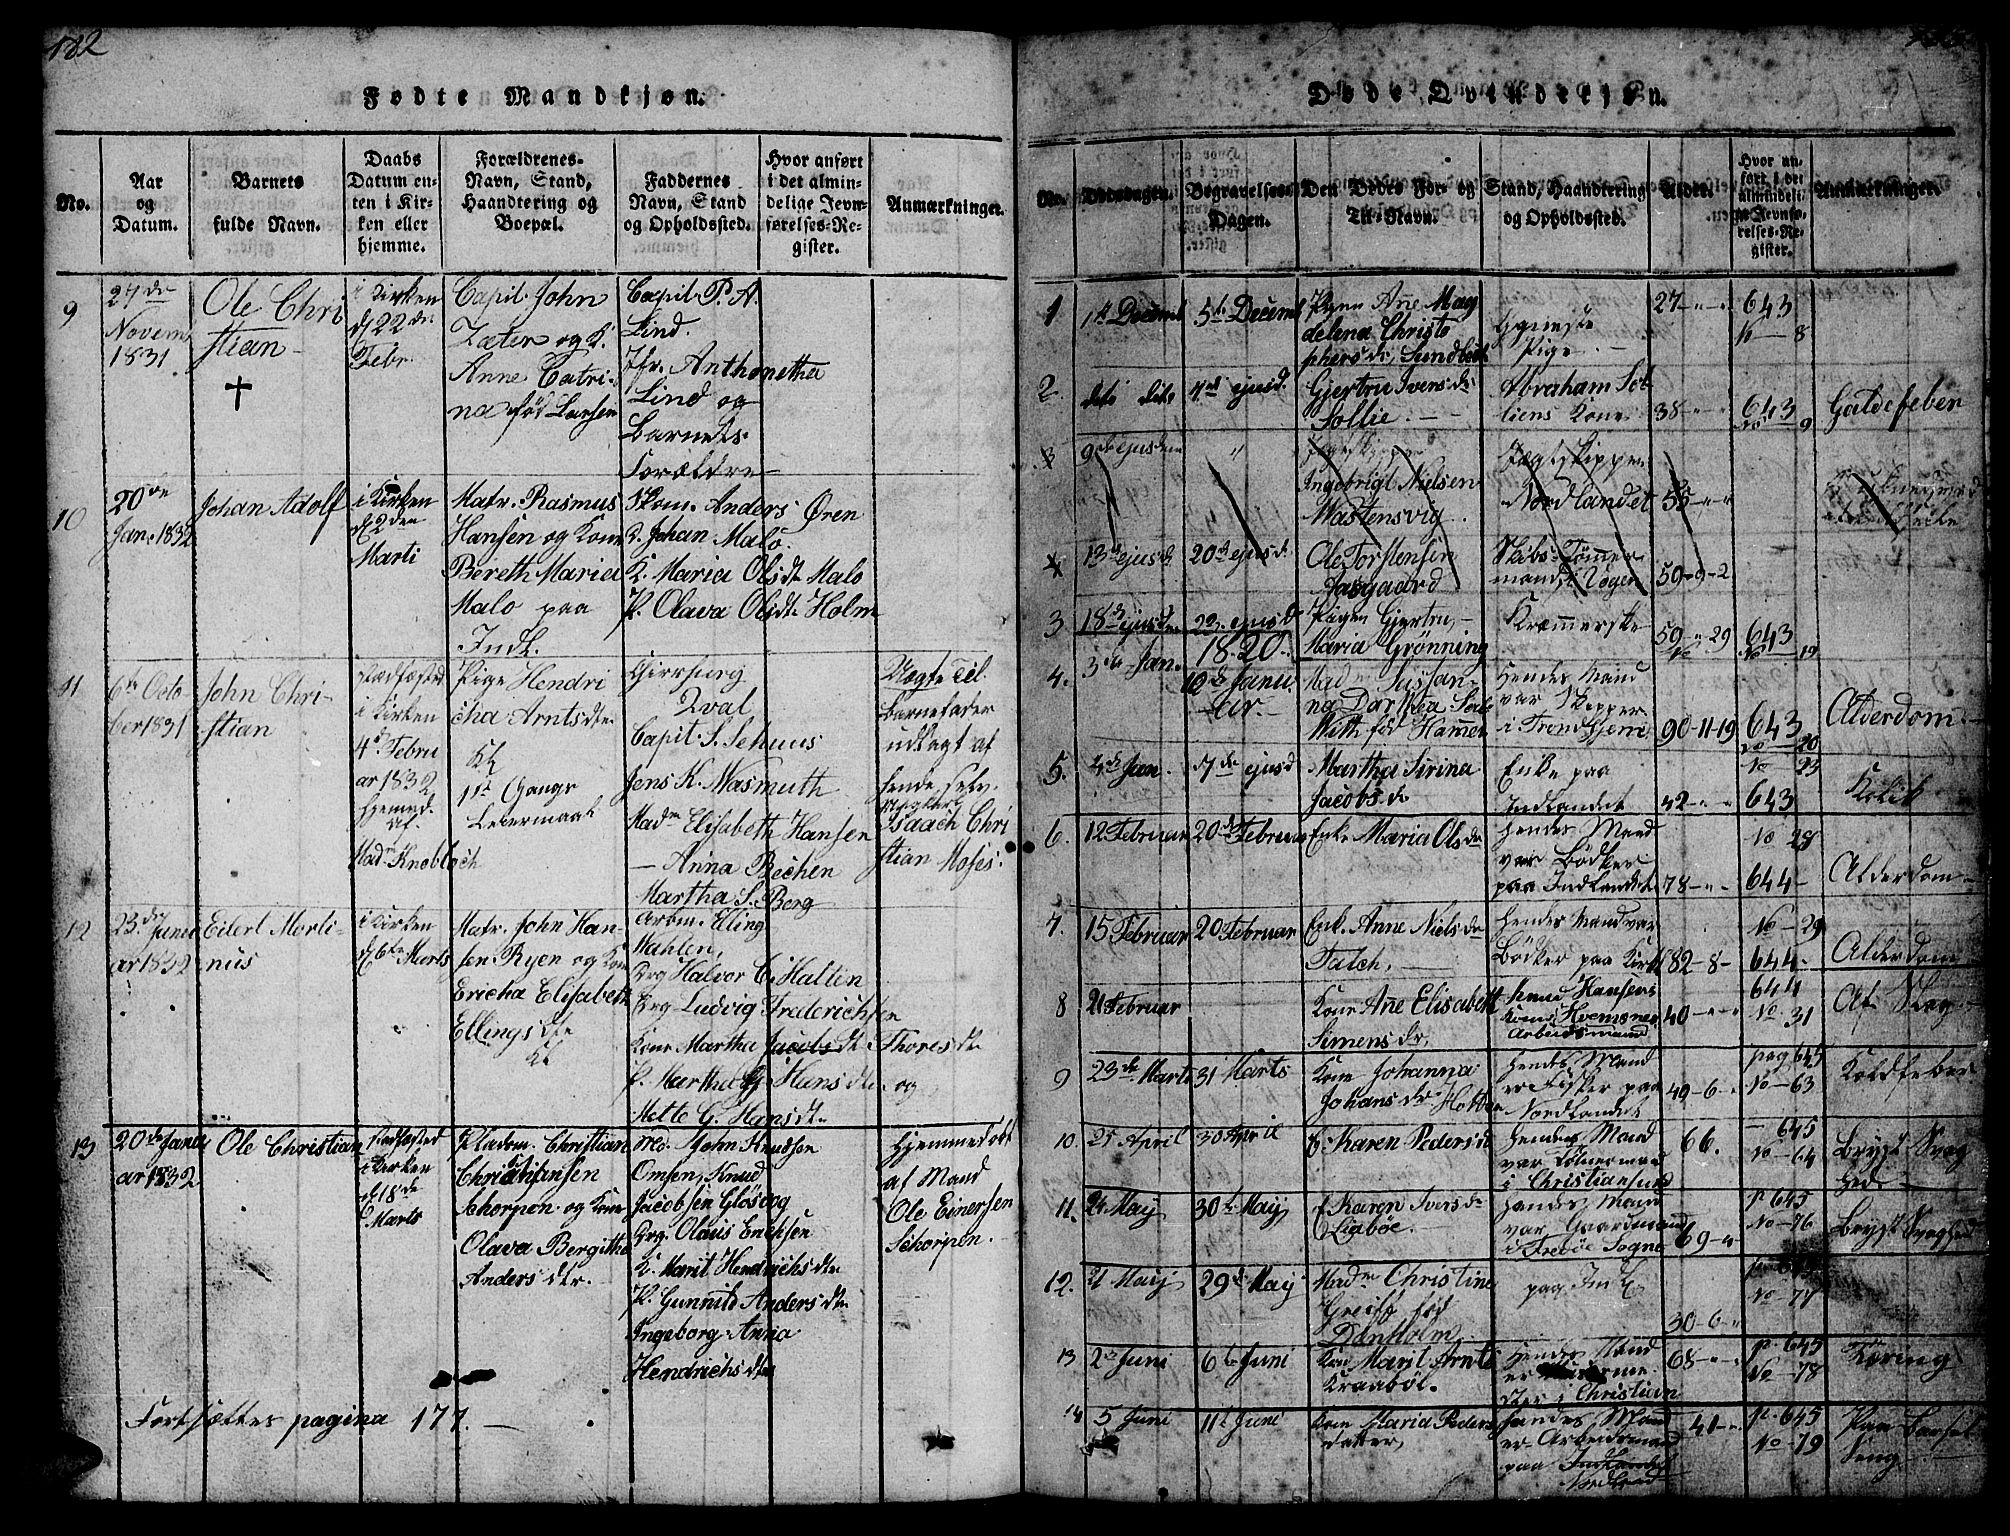 182
Fødte Mandkjøn.
No.
Aar
og
Datum.
Barnets
fulde Navn.
Daabs
Datum en-
ten i Kir-
ken eller
hjemme.
Forældrenes
Navn, Stand,
Haandtering og
Boepæl.
Faddernes
Navn, Stand
og Opholdssted.
Hvor anført
i det almin-
delige Jevn-
førelses-Re-
gister.
Anmærkninger.
9
27de
Novemb
1831
Ole Chri
stian
i Kirken
d 22de
Febr.
Capit. John
Zæter og K.
Anne Catri-
na fød Larsen
Capit. P. A.
Lind.
Jfr. Anthonetha
Lind og
Barnets
Forældre
10
20de
Jan. 1832
Johan Adolf
i Kirken
d 2den
Marti
Matr. Rasmus
Hansen og Kone
Bereth Maria
Malo paa
Indl.
Skom. Anders Øren
D. Johan Malo.
K. Maria Olsdt Malo
P. Olava Olsdtr Holm
11
6te Octo
ber 1831
John Chri-
stian
stadfæsted
i Kirken
4de Febru
ar 1832
hjemed.
af
Mad. Knobloch
Pige Hendri
cha Arntsdtr
1st Gangs
Leiermaal
Qval
Capit. S. Schuus
Jens K. Wasmuth
Madm Elisabeth Hansen
— Anna Bechen
Martha S. Berg
Uægte Til
Barnefader
udlagt af
hende selv
Isaach Chri
stian Moses.
12
23de Janu
ar 1832
Eilert Morti-
nus
i Kirken
d 6te Marts
Matr. John Han-
sen Ryen og Kone
Ericha Elisabeth
Ellingsdtr
Arbm. Elling
Wahlen,
Drg Halvor C. Halten
Drg Ludvig Frederichsen
Kone Martha Jacobsdtr Thoresdtr
P. Martha G. Hansdtr og
Mette G. Hansdtr
13
20de Janu
ar 1832
Ole Christian
stadfæsted
i Kirken
d 18de
Marts
Christian
Christiansen
Schorpen og Kone
Olava Bergitha
Andersdtr.
John Knudsen
Omsen, Knud
Jacobsen Gløsvog
Drg. Olaus Enchsen
K. Marit Hendrichsdtr
P. Gunnild Andersdtr
Ingeborg Anna
Hendrichsdtr
Hjemmedøbt
af Mand
Ole Einersen
Schorpen.
Fortsættes pagina 177.
Døde Qvindekjøn.
No.
Dødsdagen.
Begravelses-
Dagen.
Den Dødes For- og
Til-Navn.
Stand, Haandtering
og Opholdssted.
Alder.
Hvor an-
ført i det
almindeli-
ge Jevnfø-
relses-Re-
gister.
Anmærkninger.
1
1st Decembr
5te Decembr
Pigen Ane Mag
delena Christo
phersdr, Sundbak
Pige.
27 - " - "
643
No - 8
2
dito dito
7de ejusd.
Gjertru Iversdr
Sollie.
Abraham Sol
liens Kone
38 - " - "
643
No - 9
Galdefeber
3
9de ejusdem
"
Ingebrigt Nielsen
Wastensvig.
Jægtskipper
Nordlandet
55 - " - "
13de ejusd.
20de ejusd.
Ole Torstensen
Aasgaard
Skibs-Tømmer
mand i Vogen
59-9-2
3
18de ejusdem
22. ejusd
Pigen Gjertru
Maria Grønning
Kræmmerske
59 - " 29
643
No 19
1820.
4.
3die Jan.
12te Janu
ar.
Mad. Susan-
na Darthea
Witt fød Hammer
Hendes Mand
var Skipper
i Trondhjem
90-11-19
643
No - 20
Alderdom.
5.
4de Jan.
7de ejusd
Martha Sirina
Jacobsdr
Enke paa
Indlandet
42 - " - "
No - 23
643
Kolik
6.
12 Februar
20de Februar
Enke Maria Olsdr
Hendes Mand
var Bödker
paa Indlandet
78 - " - "
No - 28
644 -
Alderdom
7.
15 Februar
20 Februar
Enk. Anne Nielsdr
Falch.
Hendes Mand var
Bödker paa Kirkl
82-8-
No - 29
644
Alderdom
8
21 Februar
Kone Ane Elisabeth
Simensdr,
Knud Hansens
Kone
Arbeidsmand
40 - " - "
644
No - 31
Af Slag
9
23de Marts
31 Marts
Kone Johanna
Johansdr
Hendes Mand
er Fisker paa
Nordlandet
49-6-
pag 645
No - 63
Koldfeber
10
25 April
30 April
E. Karen Pedersdr
Hendes Mand
var Tømmermand
i Christiansund
66.
645
No - 64
Bryst Svag
hed
11.
24 Maij
30te Maij
E. Karen Iversdr
Liabøe.
Hendes Mand
var Gaardmand
i Fredøe Sogn
69 - "
p 645
No - 76
Bryst Svaghed
12.
21 Maij
29de Maij
Madm Christine
Greiff fød
Danholm.
paa Indl.
30-6-"
No - 77
13
2de Juni
6te Juni
Kone Marit Arnts
Kraabøl.
Hendes Mand
er
i Christian
68 - " - "
p. 645
No - 78
Tæring
14
5 Juni
11te Juni
Kone Maria Peders
datter,
Hendes Mand
er Arbeidsmand
paa Indlandet
Nordland
41 - "
p. 645
No - 79
Paa Barsel
Seng